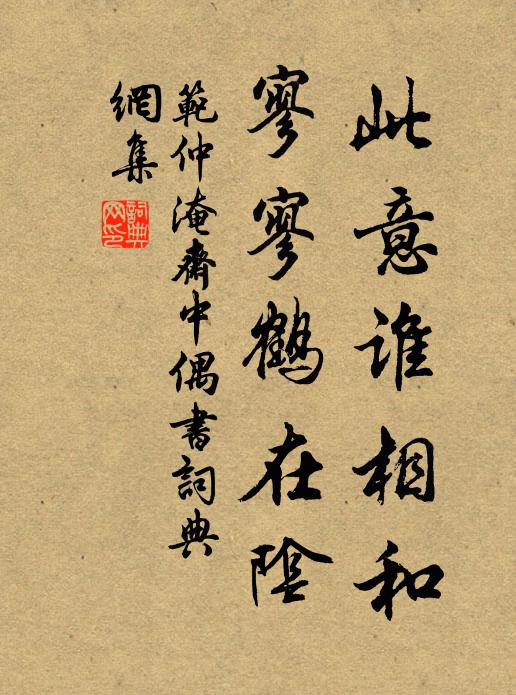 此意谁相和
寥寥鶴在陰
範仲淹齋中偶書詞典
網集
詞典
网印